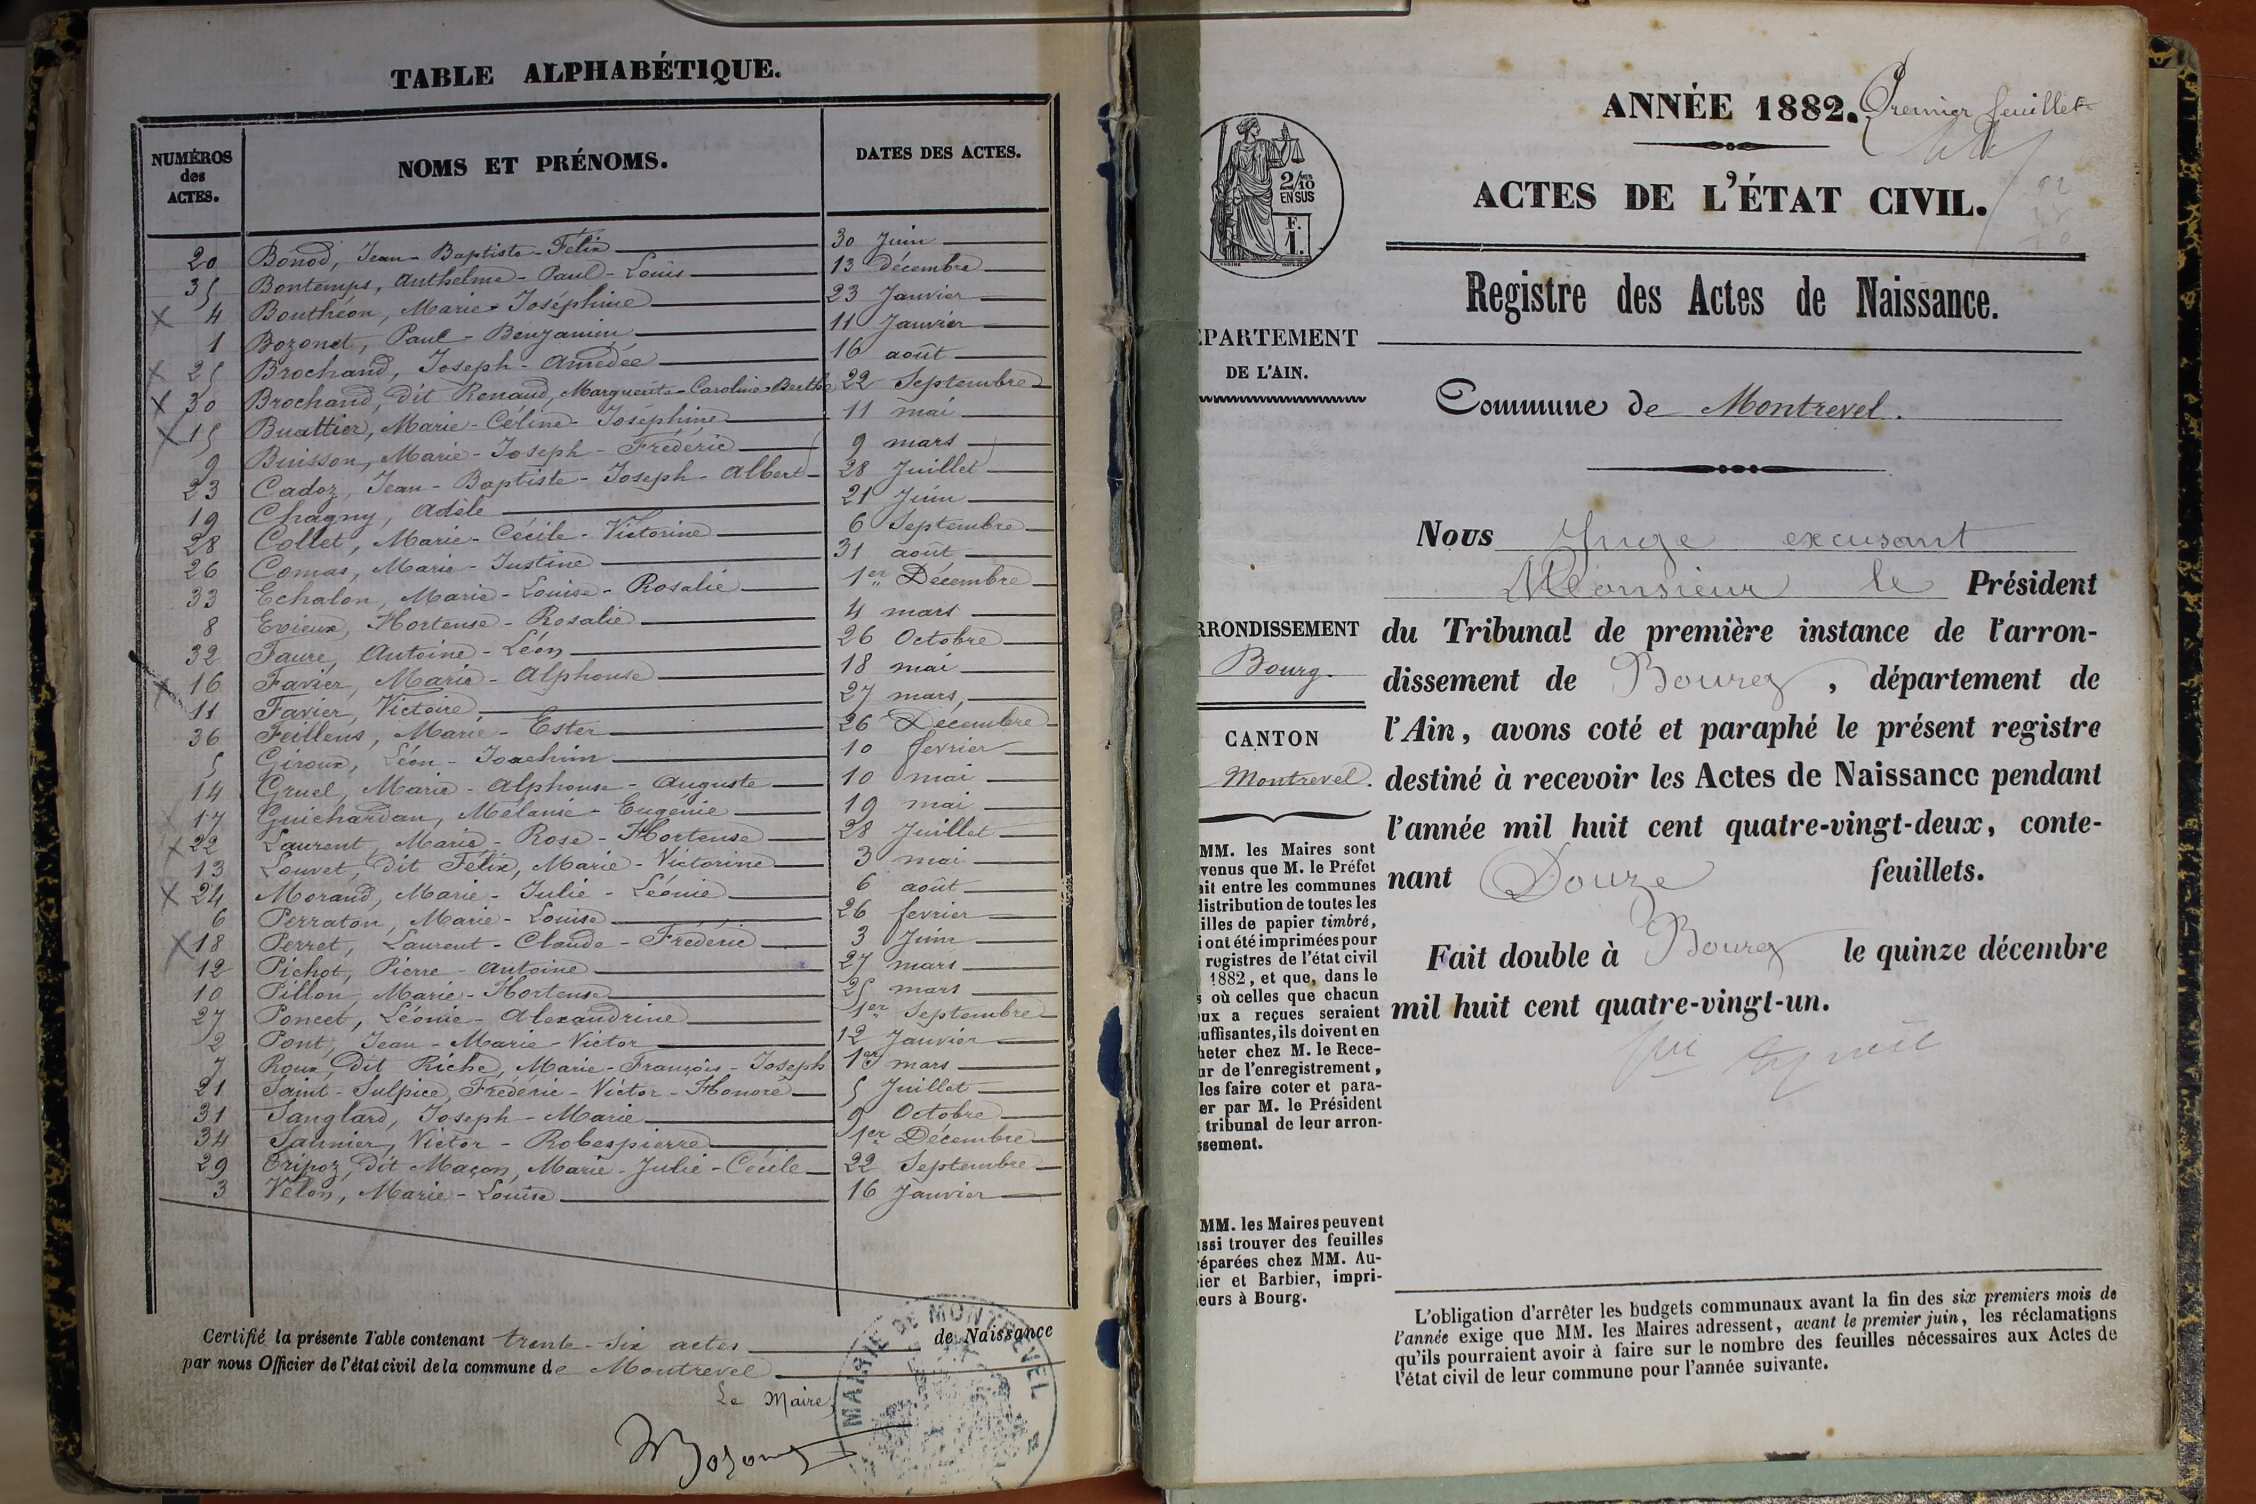 TABLE ALPHABÉTIQUE.
NUMÉROS des ACTES. NOMS ET PRÉNOMS. DATES DES ACTES.
20 Bonod, Jean-Baptiste-Félix 30 Juin
35 Bontemps, Anthelme-Paul-Louis 13 Décembre
4 Bonthéon, Marie-Joséphine 23 Janvier
1 Bozonet, Paul-Benjamin 11 Janvier
25 Brochand, Joseph-Amédée 16 août
30 Brochand, dit Renaud, Marguerite-Caroline-Berthe 22 Septembre
15 Buattier, Marie-Céline-Joséphine 11 mai
9 Buisson, Marie-Joseph-Frédéric 9 mars
23 Cadoz, Jean-Baptiste-Joseph-Albert 28 Juillet
19 Chagny, Adèle 21 Juin
28 Collet, Marie-Cécile-Victorine 6 Septembre
26 Comas, Marie-Justine 31 août
33 Echalon, Marie-Louise-Rosalie 1er Décembre
8 Evieux, Hortense-Rosalie 4 mars
32 Faure, Antoine-Léon 26 Octobre
16 Favier, Marie-Alphonse 18 mai
11 Favier, Victoire 27 mars
36 Feillens, Marie-Ester 26 Décembre
5 Giroux, Léon-Joachim 10 fevrier
14 Gruel, Marie-Alphonse-Auguste 10 mai
17 Guichardan, Mélanie-Eugénie 19 mai
22 Laurent, Marie-Rose-Hortense 28 Juillet
13 Louvet, dit Félix, Marie-Victorine 3 mai
24 Morand, Marie-Julie-Léonie 6 août
6 Perraton, Marie-Louise 26 fevrier
18 Perret, Laurent-Claude-Frédéric 3 Juin
12 Pichot, Pierre-Antoine 27 mars
10 Pillon, Marie-Hortense 25 mars
27 Poncet, Léonie-Alexandrine 1er Septembre
2 Pont, Jean-Marie-Victor 12 Janvier
7 Roux, dit Riche, Marie-François-Joseph 1er mars
21 Saint-Sulpice, Frédéric-Victor-Honoré 5 Juillet
31 Sanglard, Joseph-Marie 9 Octobre
34 Saunier, Victor-Robespierre 1er Décembre
29 Tripoz, dit Maçon, Marie-Julie-Cécile 22 Septembre
3 Velon, Marie-Louise 16 Janvier
Certifié la présente Table contenant trente-six actes de Naissance
par nous Officier de l'état civil de la commune de Montrevel
Le Maire,
MAIRIE DE MONTREVEL
ANNÉE 1882. Premier feuillet
ACTES DE L'ÉTAT CIVIL.
2/10
EN SUS
F.
1.
Registre des Actes de Naissance.
ÉPARTEMENT
DE L'AIN.
Commune de Montrevel.
RRONDISSEMENT
Bourg.
CANTON
Montrevel.
MM. les Maires sont
venus que M. le Préfet
ait entre les communes
distribution de toutes les
illes de papier timbré,
i ont été imprimées pour
registres de l'état civil
1882, et que, dans le
s où celles que chacun
ux a reçues seraient
suffisantes, ils doivent en
heter chez M. le Rece-
ur de l'enregistrement,
les faire coter et para-
er par M. le Président
tribunal de leur arron-
ssement.
MM. les Maires peuvent
ussi trouver des feuilles
réparées chez MM. Au-
ier et Barbier, impri-
eurs à Bourg.
Nous Juge excusant
Monsieur le Président
du Tribunal de première instance de l'arron-
dissement de Bourg, département de
l'Ain, avons coté et paraphé le présent registre
destiné à recevoir les Actes de Naissance pendant
l'année mil huit cent quatre-vingt-deux, conte-
nant Douze feuillets.
Fait double à Bourg le quinze décembre
mil huit cent quatre-vingt-un.
L'obligation d'arrêter les budgets communaux avant la fin des six premiers mois de
l'année exige que MM. les Maires adressent, avant le premier juin, les réclamations
qu'ils pourraient avoir à faire sur le nombre des feuilles nécessaires aux Actes de
l'état civil de leur commune pour l'année suivante.